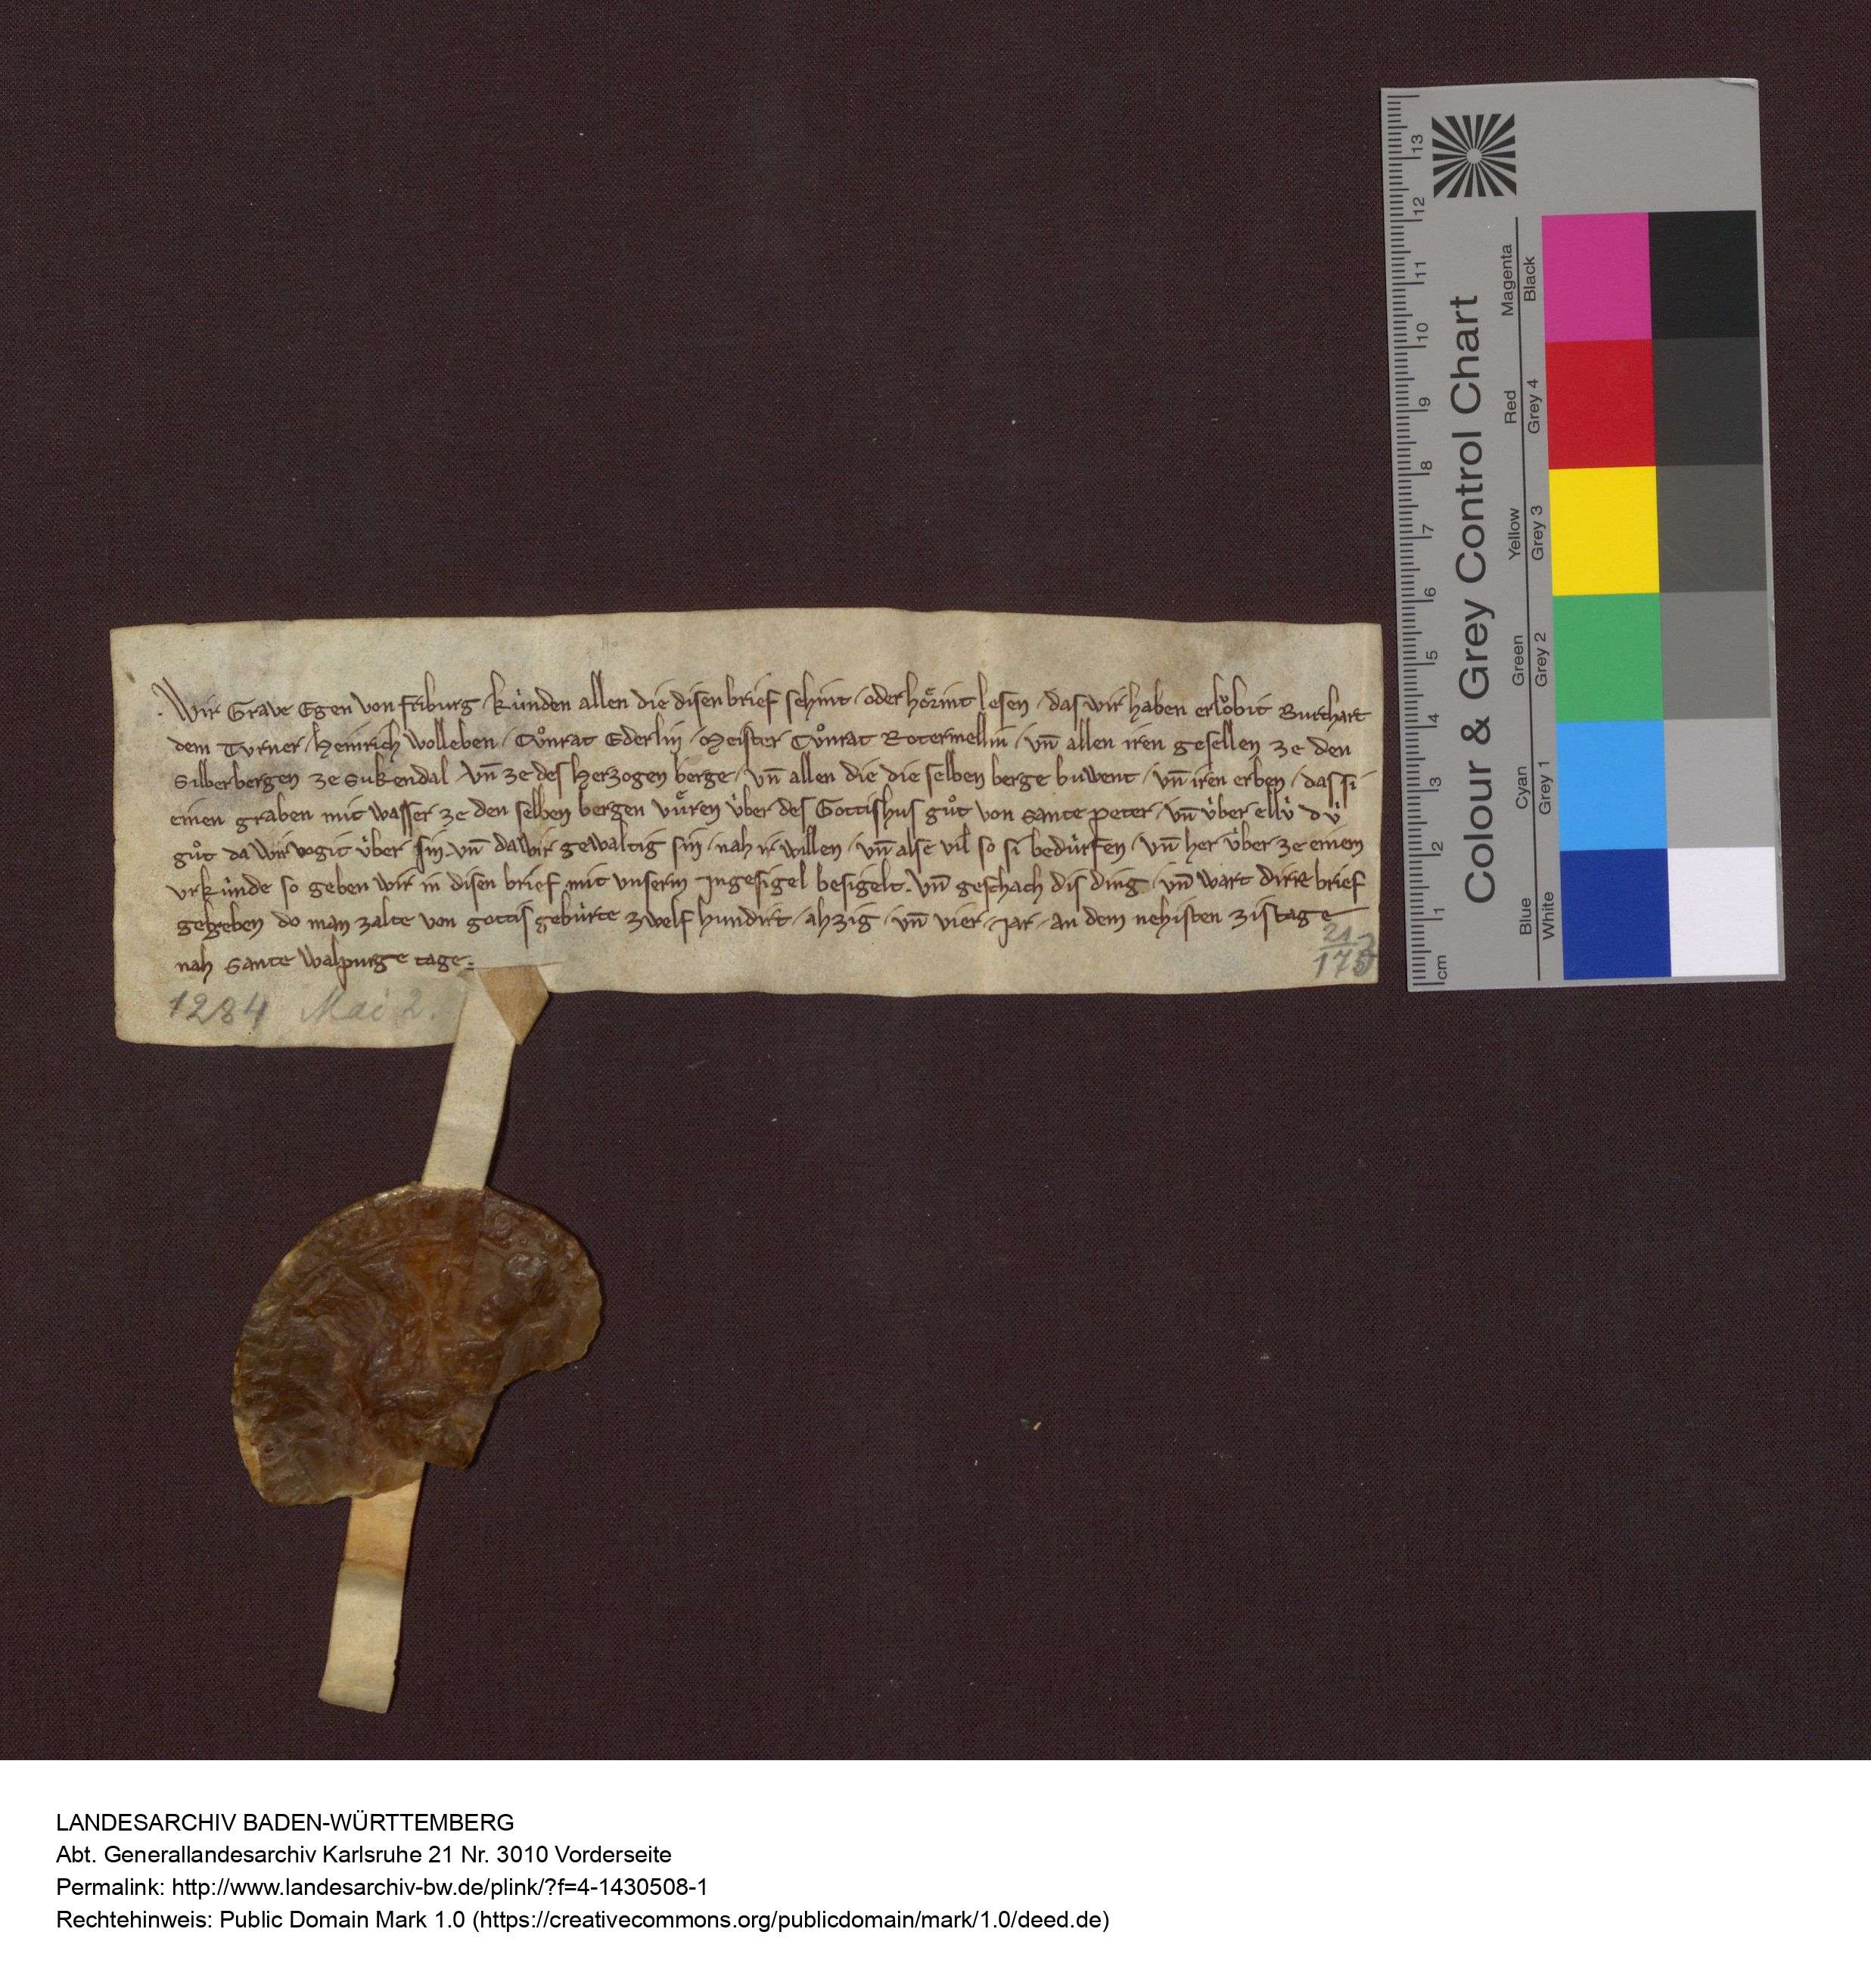 .Wir Grave Egen von Friburg / kv̍nden allen die disen brief sehint / oder hoͤrint lesen / das wir haben erloͮbit Burchart
dem Tvrner / Heinrich Wolleben / Cuͦnrat Ederlin / Meister Cuͦnrat Rotermellin / vn̄ allen iren gesellen ze den
Silberbergen ze Sukendal / vn̄ ze des Herzogen berge / vn̄ allen die die selben berge buwent / vn̄ iren erben / das si
einen graben mit wasser ze den selben bergen vuͤren v̍ber des Gottishus guͦt von Sante Peter / vn̄ v̍ber ellv̍ dv̍
guͦt da wir vogit v̍ber sin / vn̄ da wir gewaltig sin / nah ir willen / vn̄ alse vil so si bedv̍rfen / vn̄ her v̍ber ze einem
vrkv̍nde so geben wir in disen brief mit vnserm Ingesigel besigelt. Vn̄ geschach dis ding / vn̄ wart dirre brief
gegeben do man zalte von gottis gebv̍rte zwelf hundirt / ahzig / vn̄ vier / Jar / an dem nehisten zistage
nah Sante Walpurge tage.
21
175
1284 Mai 2.
Colour & Grey Control Chart
Magenta Red Yellow Green Cyan Blue
Black Grey 4 Grey 3 Grey 2 Grey 1 White
cm 1 2 3 4 5 6 7 8 9 10 11 12 13
LANDESARCHIV BADEN-WÜRTTEMBERG
Abt. Generallandesarchiv Karlsruhe 21 Nr. 3010 Vorderseite
Permalink: http://www.landesarchiv-bw.de/plink/?f=4-1430508-1
Rechtehinweis: Public Domain Mark 1.0 (https://creativecommons.org/publicdomain/mark/1.0/deed.de)